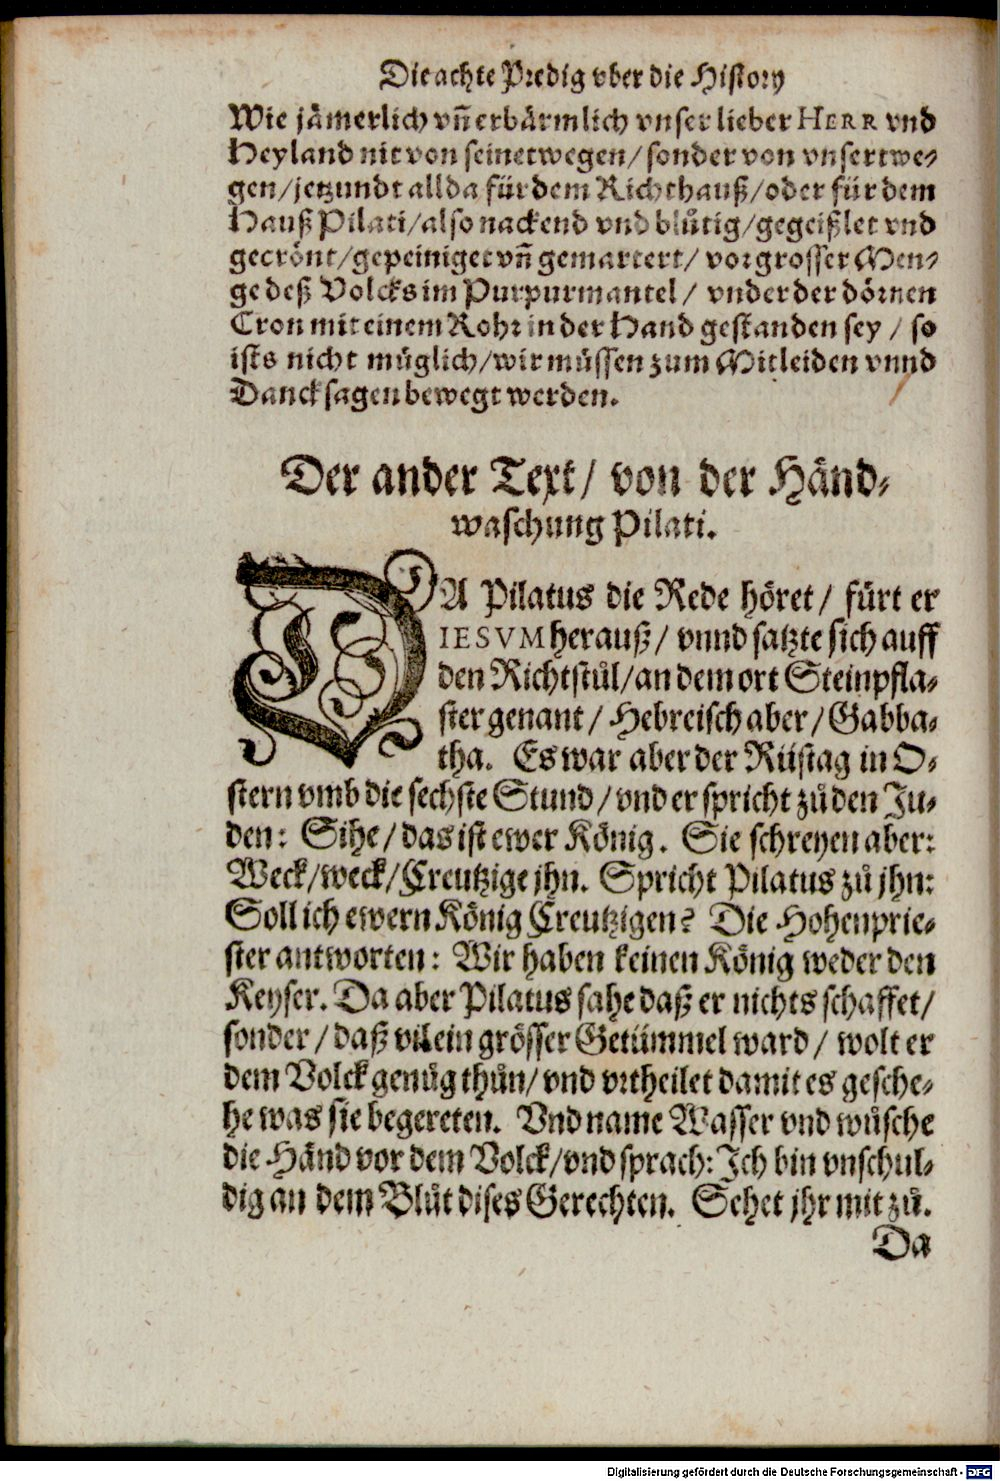 Die achte Predig vber die History
Wie jämerlich vñ erbärmlich vnser lieber HERR vnd
Heyland nit von seinetwegen/ sonder von vnsertwe⸗
gen/ jetzundt allda für dem Richthauß/ oder für dem
Hauß Pilati/ also nackend vnd blůtig/ gegeißlet vnd
gecrönt/ gepeiniget vñ gemartert/ vor grosser Men⸗
ge deß Volcks im Purpurmantel/ vnder der dörnen
Cron mit einem Rohr in der Hand gestanden sey/ so
ists nicht müglich/ wir müssen zum Mitleiden vnnd
Dancksagen bewegt werden.
Der ander Text/ von der Händ⸗
waschung Pilati.
DA Pilatus die Rede höret/ fürt er
IESVM herauß/ vnnd satzte sich auff
den Richtstůl/ an dem ort Steinpfla⸗
ster genant/ Hebreisch aber/ Gabba⸗
tha. Es war aber der Rüstag in O⸗
stern vmb die sechste Stund/ vnd er spricht zů den Ju⸗
den: Sihe/ das ist ewer König. Sie schreyen aber:
Weck/ weck/ Creutzige jhn. Spricht Pilatus zů jhn:
Soll ich ewern König Creutzigen? Die Hohenprie⸗
ster antworten: Wir haben keinen König weder den
Keyser. Da aber Pilatus sahe daß er nichts schaffet/
sonder/ daß vil ein grösser Getümmel ward/ wolt er
dem Volck genůg thůn/ vnd vrtheilet damit es gesche⸗
he was sie begereten. Vnd name Wasser vnd wůsche
die Händ vor dem Volck/ vnd sprach: Ich bin vnschul⸗
dig an dem Blůt dises Gerechten. Sehet jhr mit zů.
Da
Digitalisierung gefördert durch die Deutsche Forschungsgemeinschaft - DFG